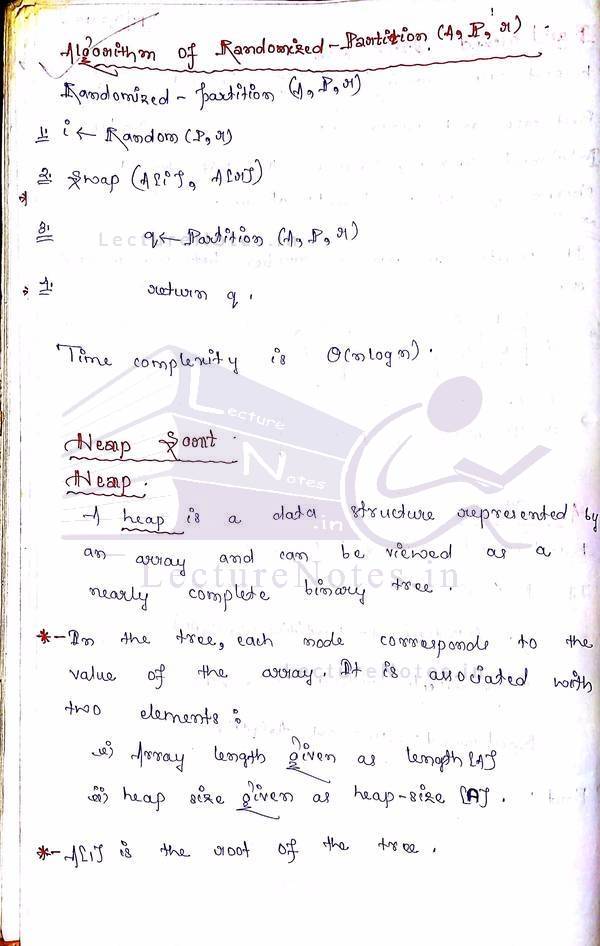 Algorithm of Randomized-Partition (A, P, r)
Randomized-partition (A, P, r)
1. i ← Random (P, r)
2. Swap (A[i], A[r])
3. q ← Partition (A, P, r)
4. return q.
Time complexity is O(n log n).
Heap Sort
Heap.
A heap is a data structure represented by
an array and can be viewed as a
nearly complete binary tree.
*- In the tree, each node corresponds to the
value of the array. It is associated with
two elements:
i) Array length given as length [A]
ii) heap size given as heap-size [A].
*- A[1] is the root of the tree.
Lecture
Notes
.in
LectureNotes.in